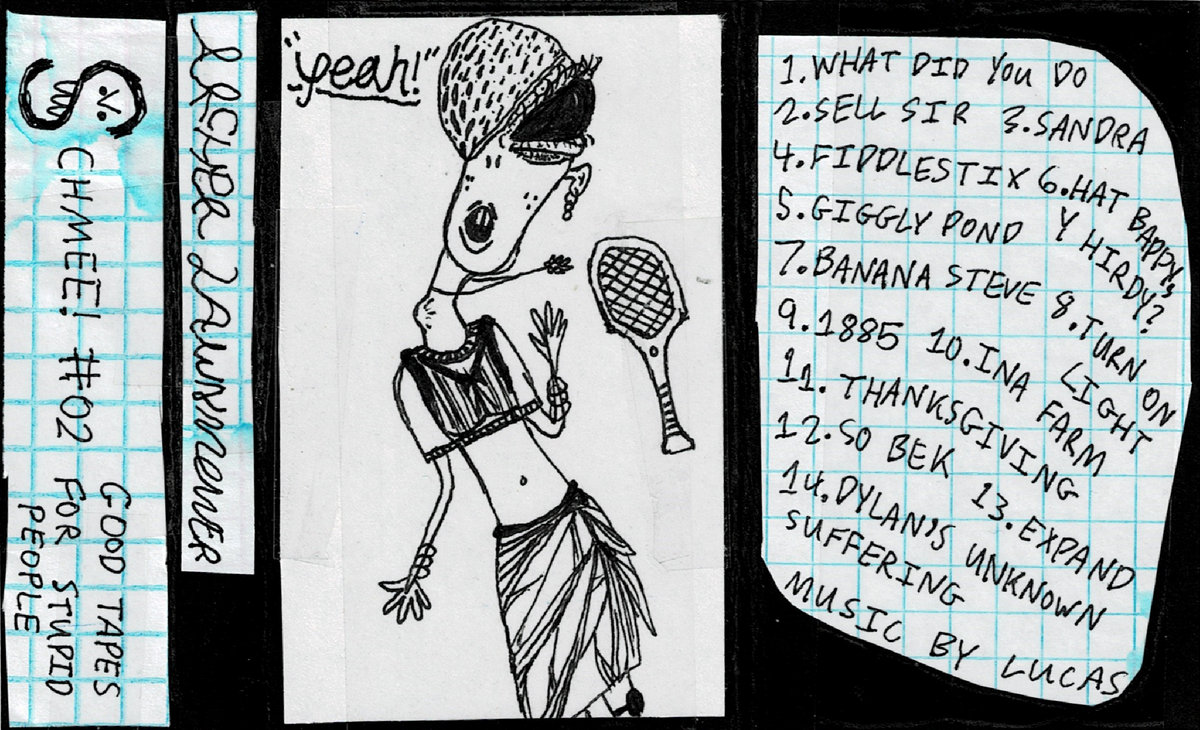 SCHMEE! #02
GOOD TAPES
FOR STUPID
PEOPLE
"yeah!"
1.WHAT DID YOU DO
2.SELL SIR 3.SANDRA
4.FIDDLESTIX 6.HAT BAPPY,
5.GIGGLY POND Y HIRDY?
7.BANANA STEVE 8.TURN ON
LIGHT
9.1885 10.INA FARM
11. THANKSGIVING
12.SO BEK 13.EXPAND
14.DYLAN'S UNKNOWN
SUFFERING
MUSIC BY LUCAS